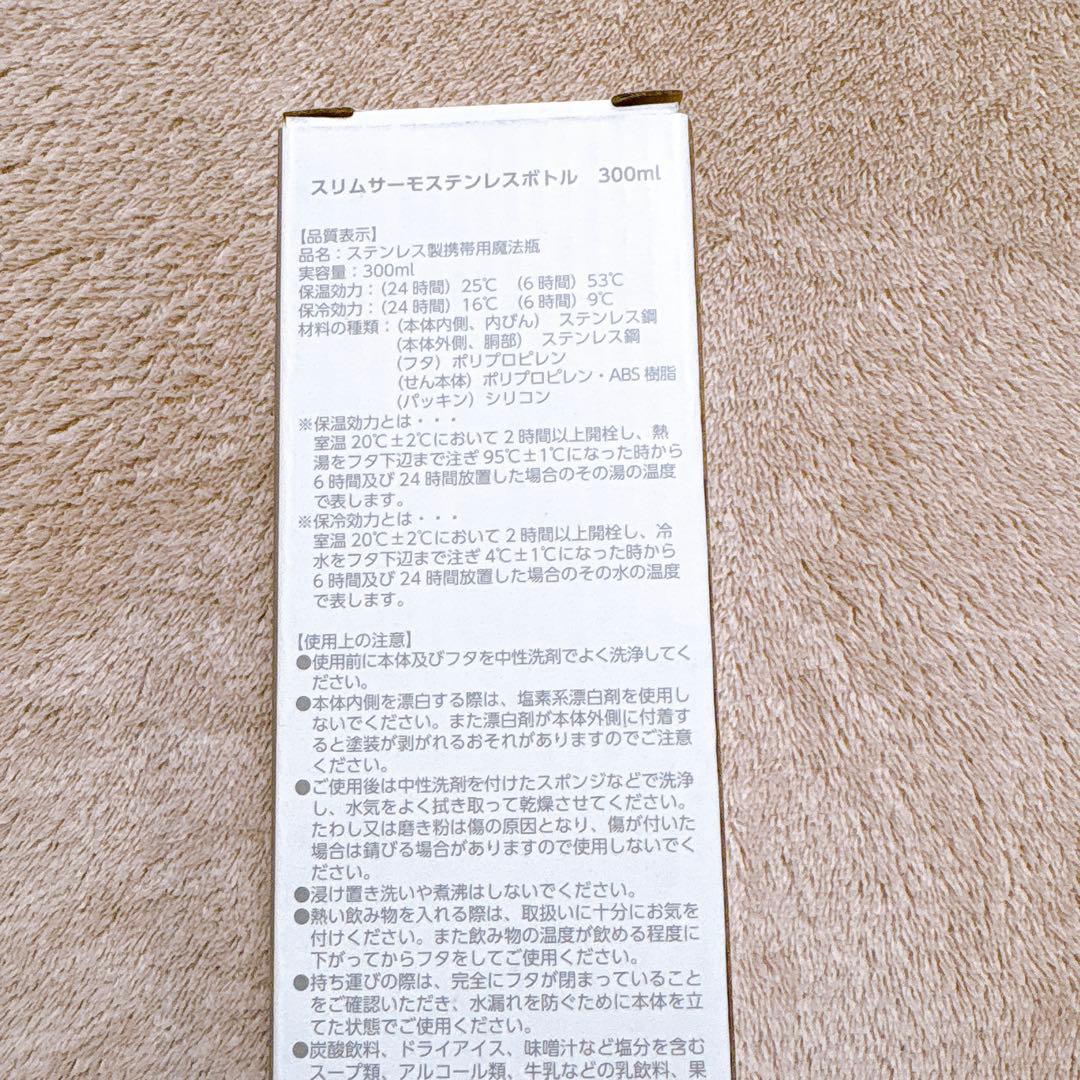 スリムサーモステンレスボトル　300ml
【品質表示】
品名：ステンレス製携帯用魔法瓶
実容量：300ml
保温効力：（24時間）25℃　（6時間）53℃
保冷効力：（24時間）16℃　（6時間）9℃
材料の種類：（本体内側、内びん）　ステンレス鋼
（本体外側、胴部）　ステンレス鋼
（フタ）ポリプロピレン
（せん本体）ポリプロピレン・ABS樹脂
（パッキン）シリコン
※保温効力とは・・・
室温20℃±2℃において2時間以上開栓し、熱
湯をフタ下辺まで注ぎ95℃±1℃になった時から
6時間及び24時間放置した場合のその湯の温度
で表します。
※保冷効力とは・・・
室温20℃±2℃において2時間以上開栓し、冷
水をフタ下辺まで注ぎ4℃±1℃になった時から
6時間及び24時間放置した場合のその水の温度
で表します。
【使用上の注意】
●使用前に本体及びフタを中性洗剤でよく洗浄してく
ださい。
●本体内側を漂白する際は、塩素系漂白剤を使用し
ないでください。また漂白剤が本体外側に付着す
ると塗装が剥がれるおそれがありますのでご注意
ください。
●ご使用後は中性洗剤を付けたスポンジなどで洗浄
し、水気をよく拭き取って乾燥させてください。
たわし又は磨き粉は傷の原因となり、傷が付いた
場合は錆びる場合がありますので使用しないでく
ださい。
●浸け置き洗いや煮沸はしないでください。
●熱い飲み物を入れる際は、取扱いに十分にお気を
付けください。また飲み物の温度が飲める程度に
下がってからフタをしてご使用ください。
●持ち運びの際は、完全にフタが閉まっていること
をご確認いただき、水漏れを防ぐために本体を立
てた状態でご使用ください。
●炭酸飲料、ドライアイス、味噌汁など塩分を含む
スープ類、アルコール類、牛乳などの乳飲料、果